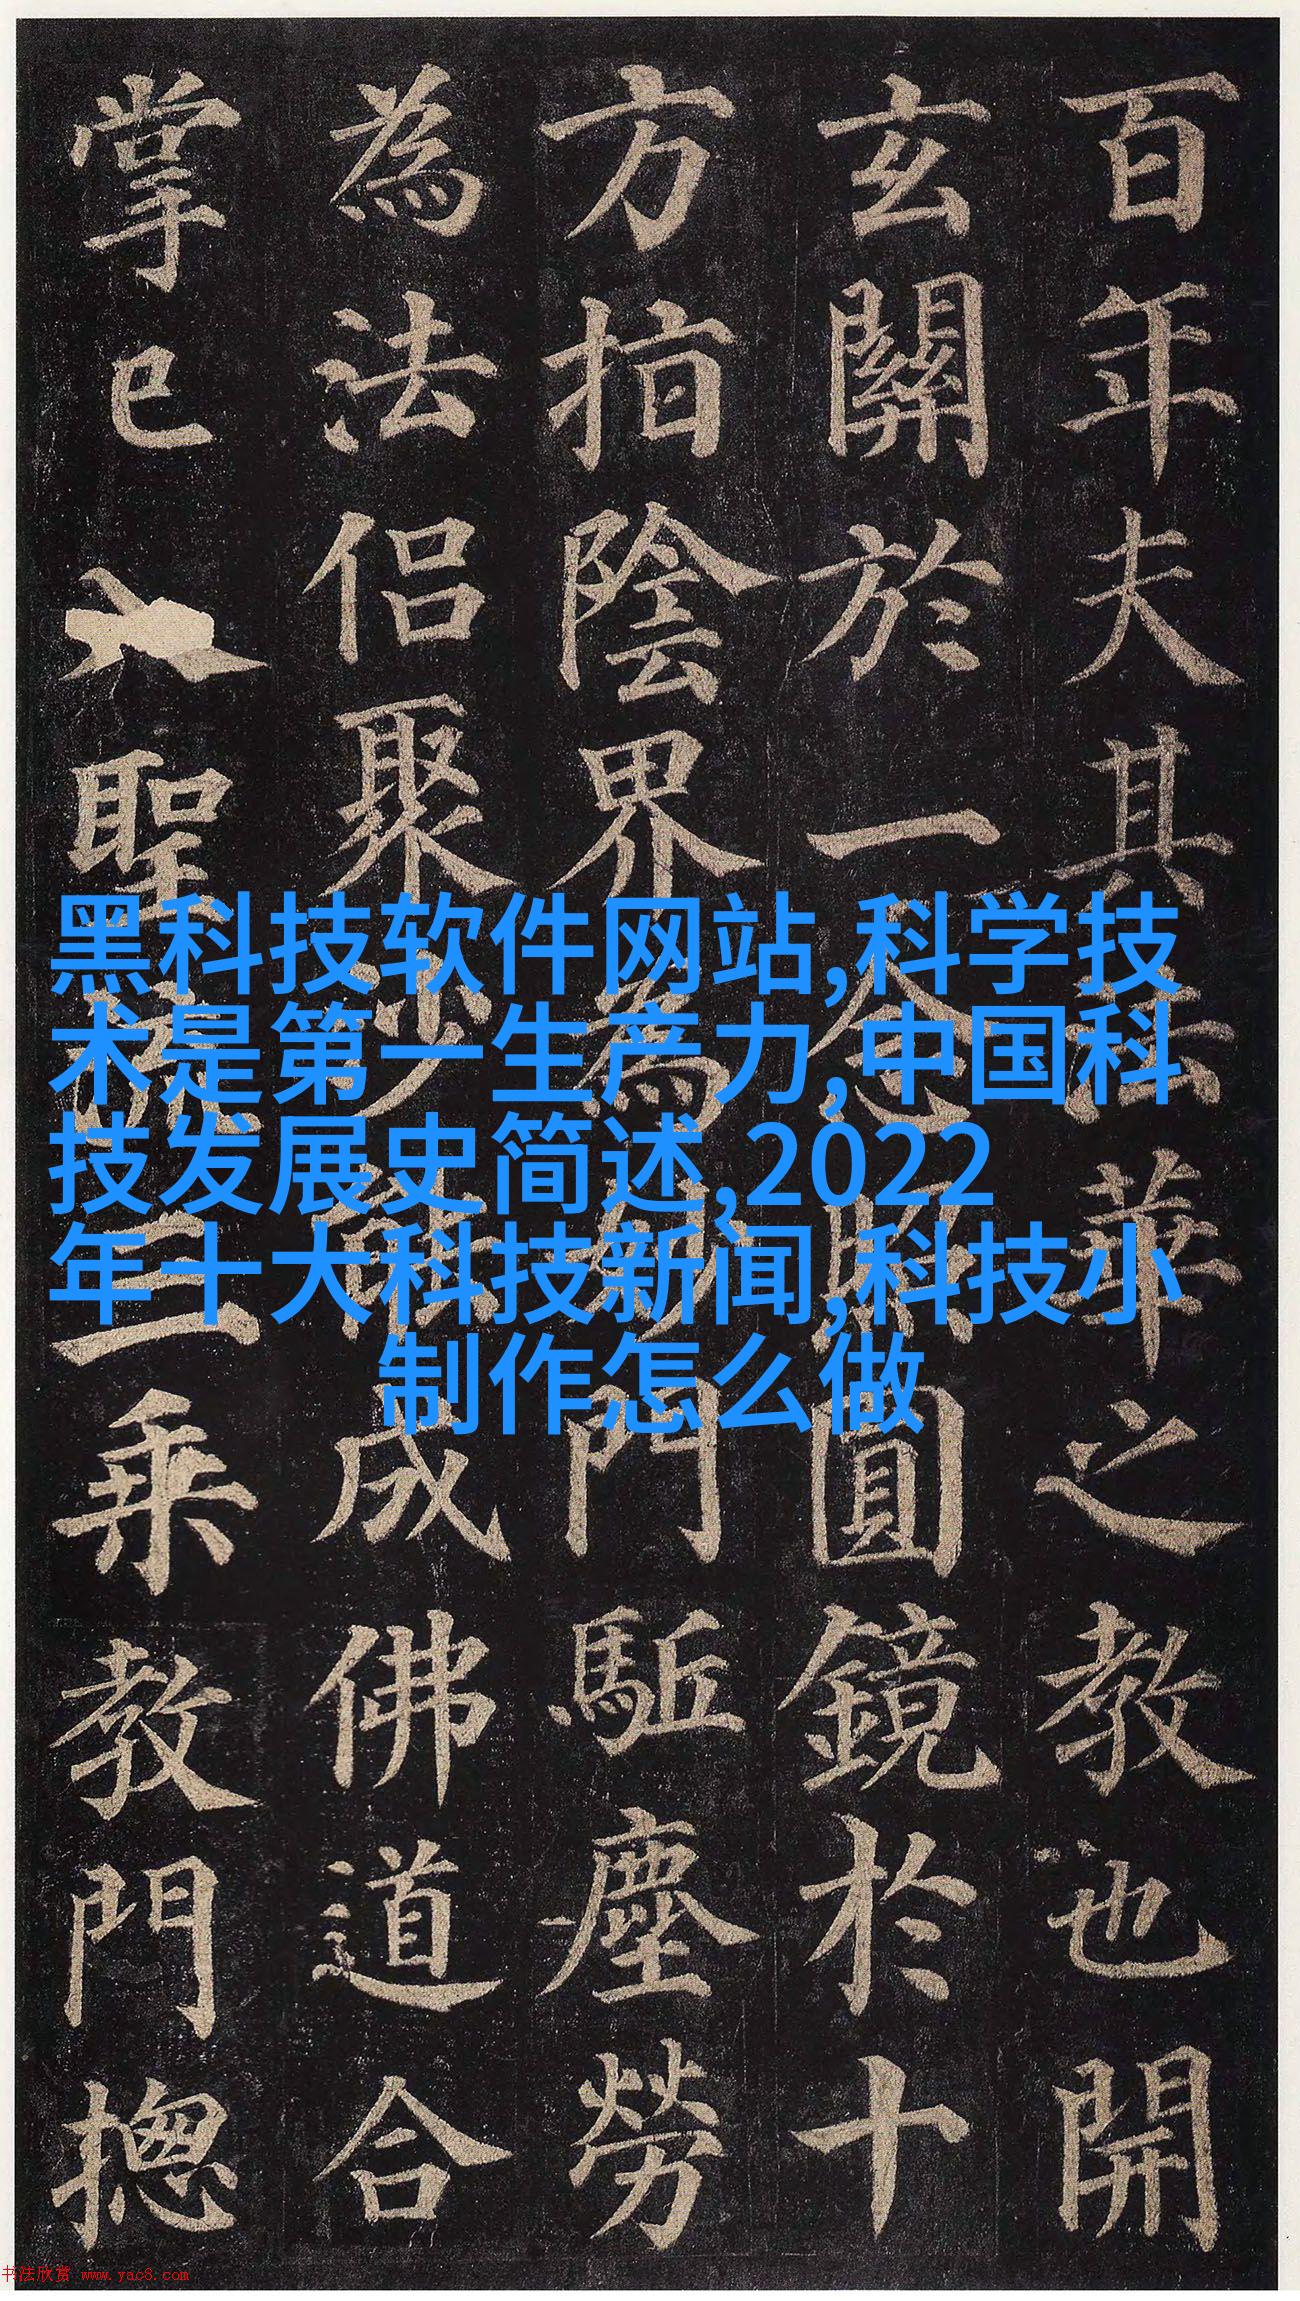 百年夫其法華之教也開
玄關於一念照圓鏡於十
方指陰界為妙門駈塵勞
為法侣聚沙能成佛道合
掌已聖三乘教門摠
黑科技软件网站,科学技
术是第一生产力,中国科
技发展史简述,2022
年十大科技新闻,科技小
制作怎么做
书法欣赏 www.yac8.com